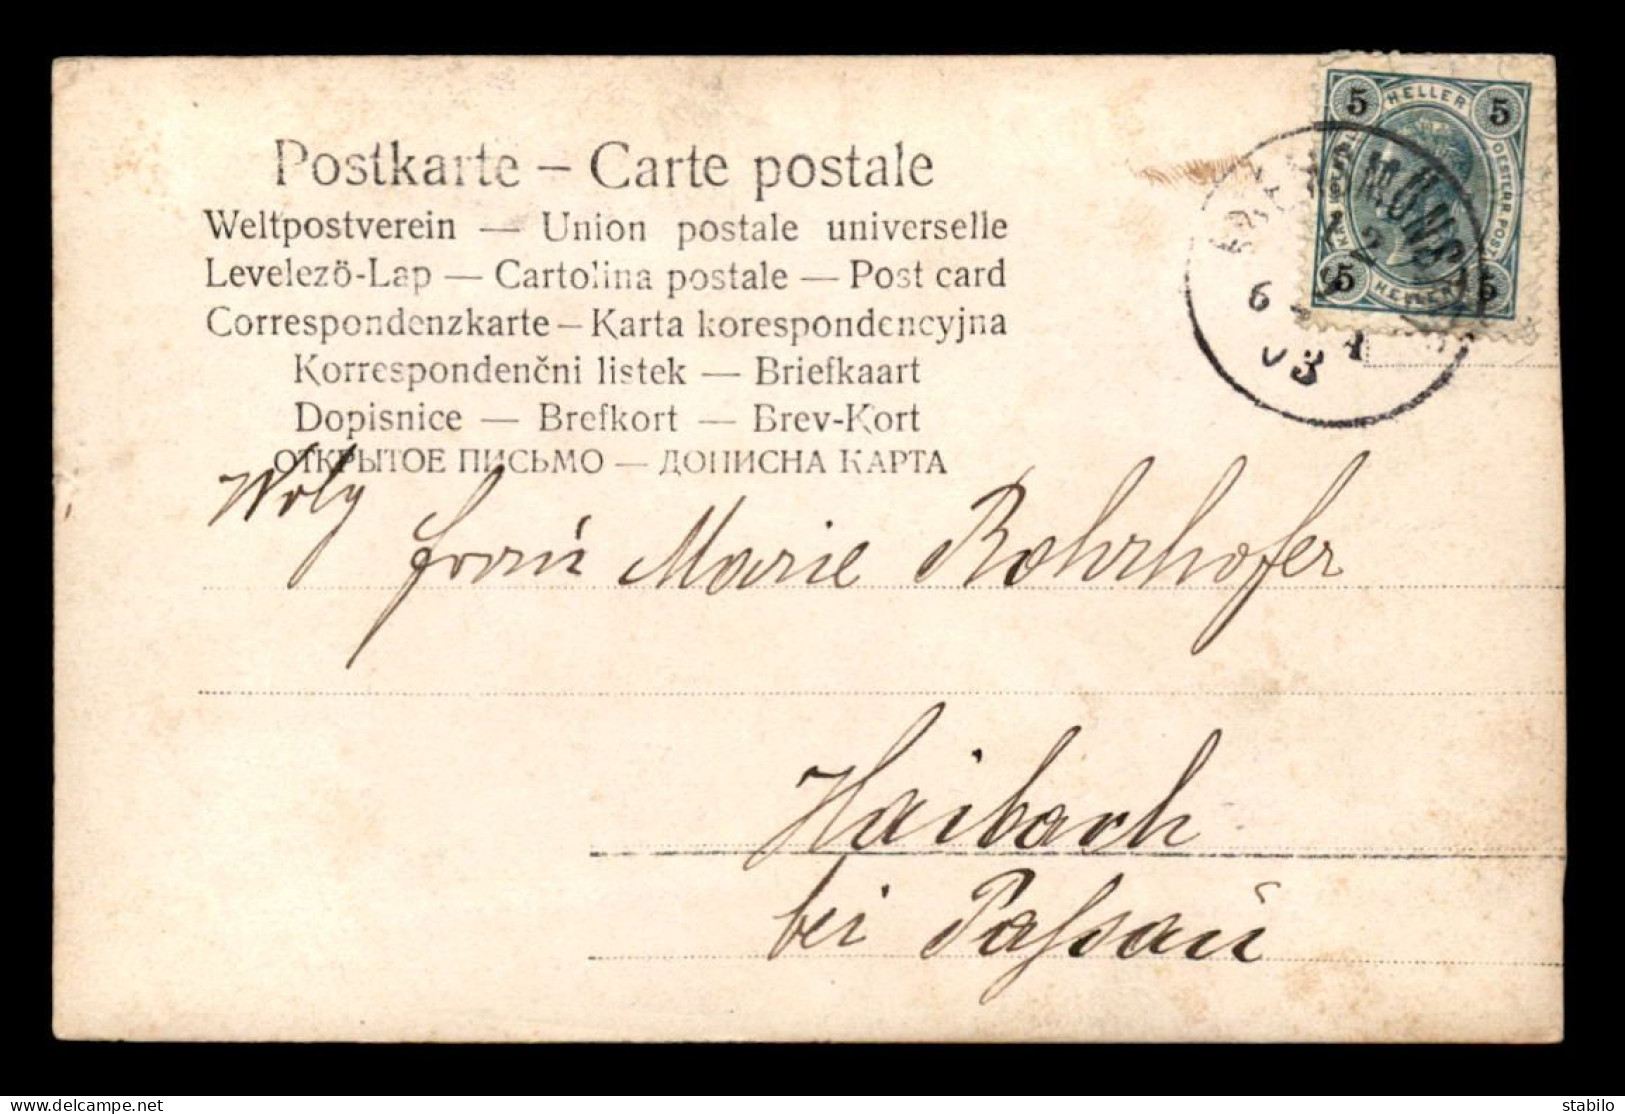 Postkarte – Carte postale
Weltpostverein — Union postale universelle
Levelezö-Lap — Cartolina postale — Post card
Correspondenzkarte – Karta korespondencyjna
Korrespondenčni listek — Briefkaart
Dopisnice — Brefkort — Brev-Kort
ОТКРЫТОЕ ПИСЬМО — ДОПИСНА КАРТА
5 HELLER 5
OESTERR. POST
5 HELLER 5
6
03
Frau Marie Rohrhofer
Haibach
bei Passau
stabilo